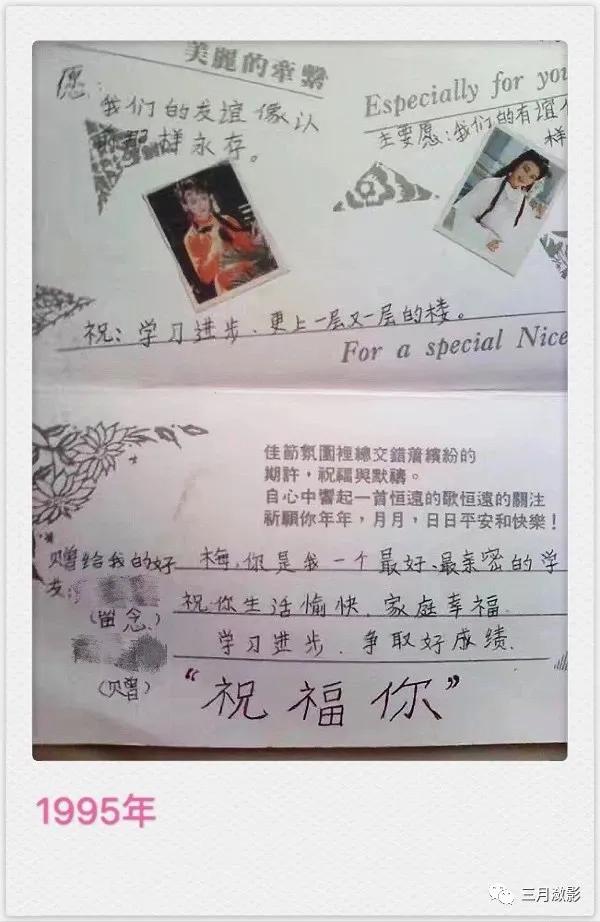 美麗的牽繫
愿：
我们的友谊像认
前那样永存。
Especially for you
主要愿：我们的有谊
样
祝：学习进步、更上一层又一层的楼。
For a special Nice
佳節氛圍裡總交錯着繽紛的
期許，祝福與默禱。
自心中響起一首恒遠的歌恒遠的關注
祈願你年年，月月，日日平安和快樂！
赠给我的好
友：
（留念）
（赠）
梅，你是我一个最好、最亲密的学
祝你生活愉快、家庭幸福．
学习进步、争取好成绩．
“祝福你”
1995年
三月潋影